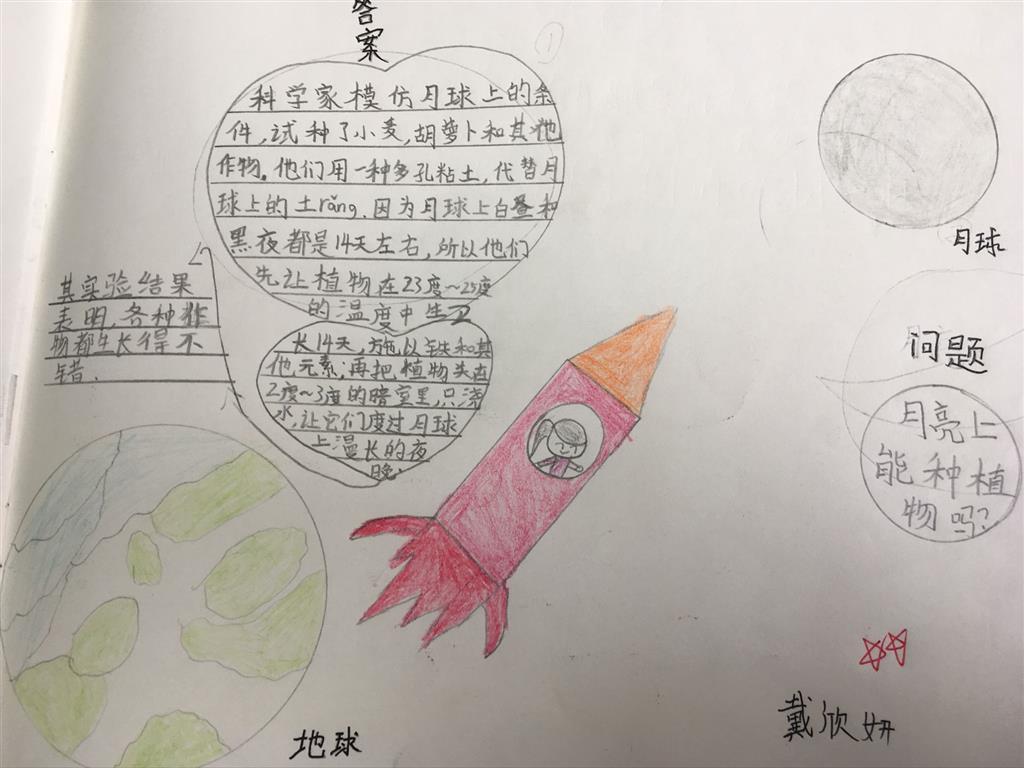 答案
科学家模仿月球上的条
件，试种了小麦，胡萝卜和其他
作物。他们用一种多孔粘土，代替月
球上的土rǎng.因为月球上白昼和
黑夜都是14天左右，所以他们
先让植物在23度~25度
的温度中生
长14天，施以铁和其
他元素；再把植物关在
2度~3度的暗室里，只浇
水，让它们度过月球
上漫长的夜
晚.
其实验结果
表明，各种作
物都生长得不
错.
月球
问题
月亮上
能种植
物吗？
地球
戴欣妍